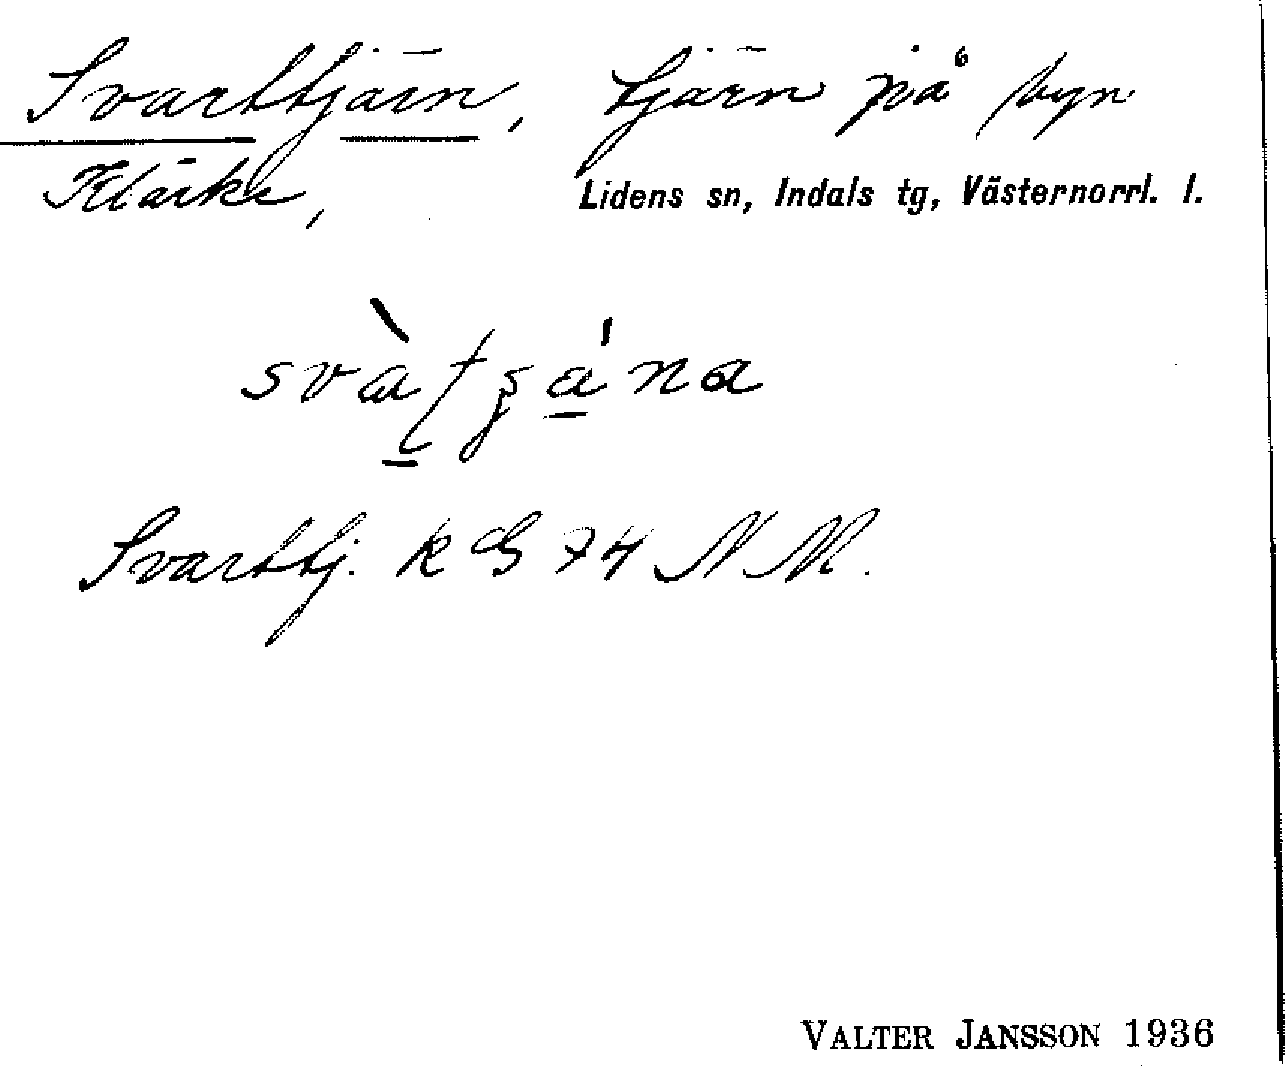 Svarttjärn, tjärn på byn
Klärke,
Lidens sn, Indals tg, Västernorrl. l.
Svarttj. k G 74 NM.
VALTER JANSSON 1936